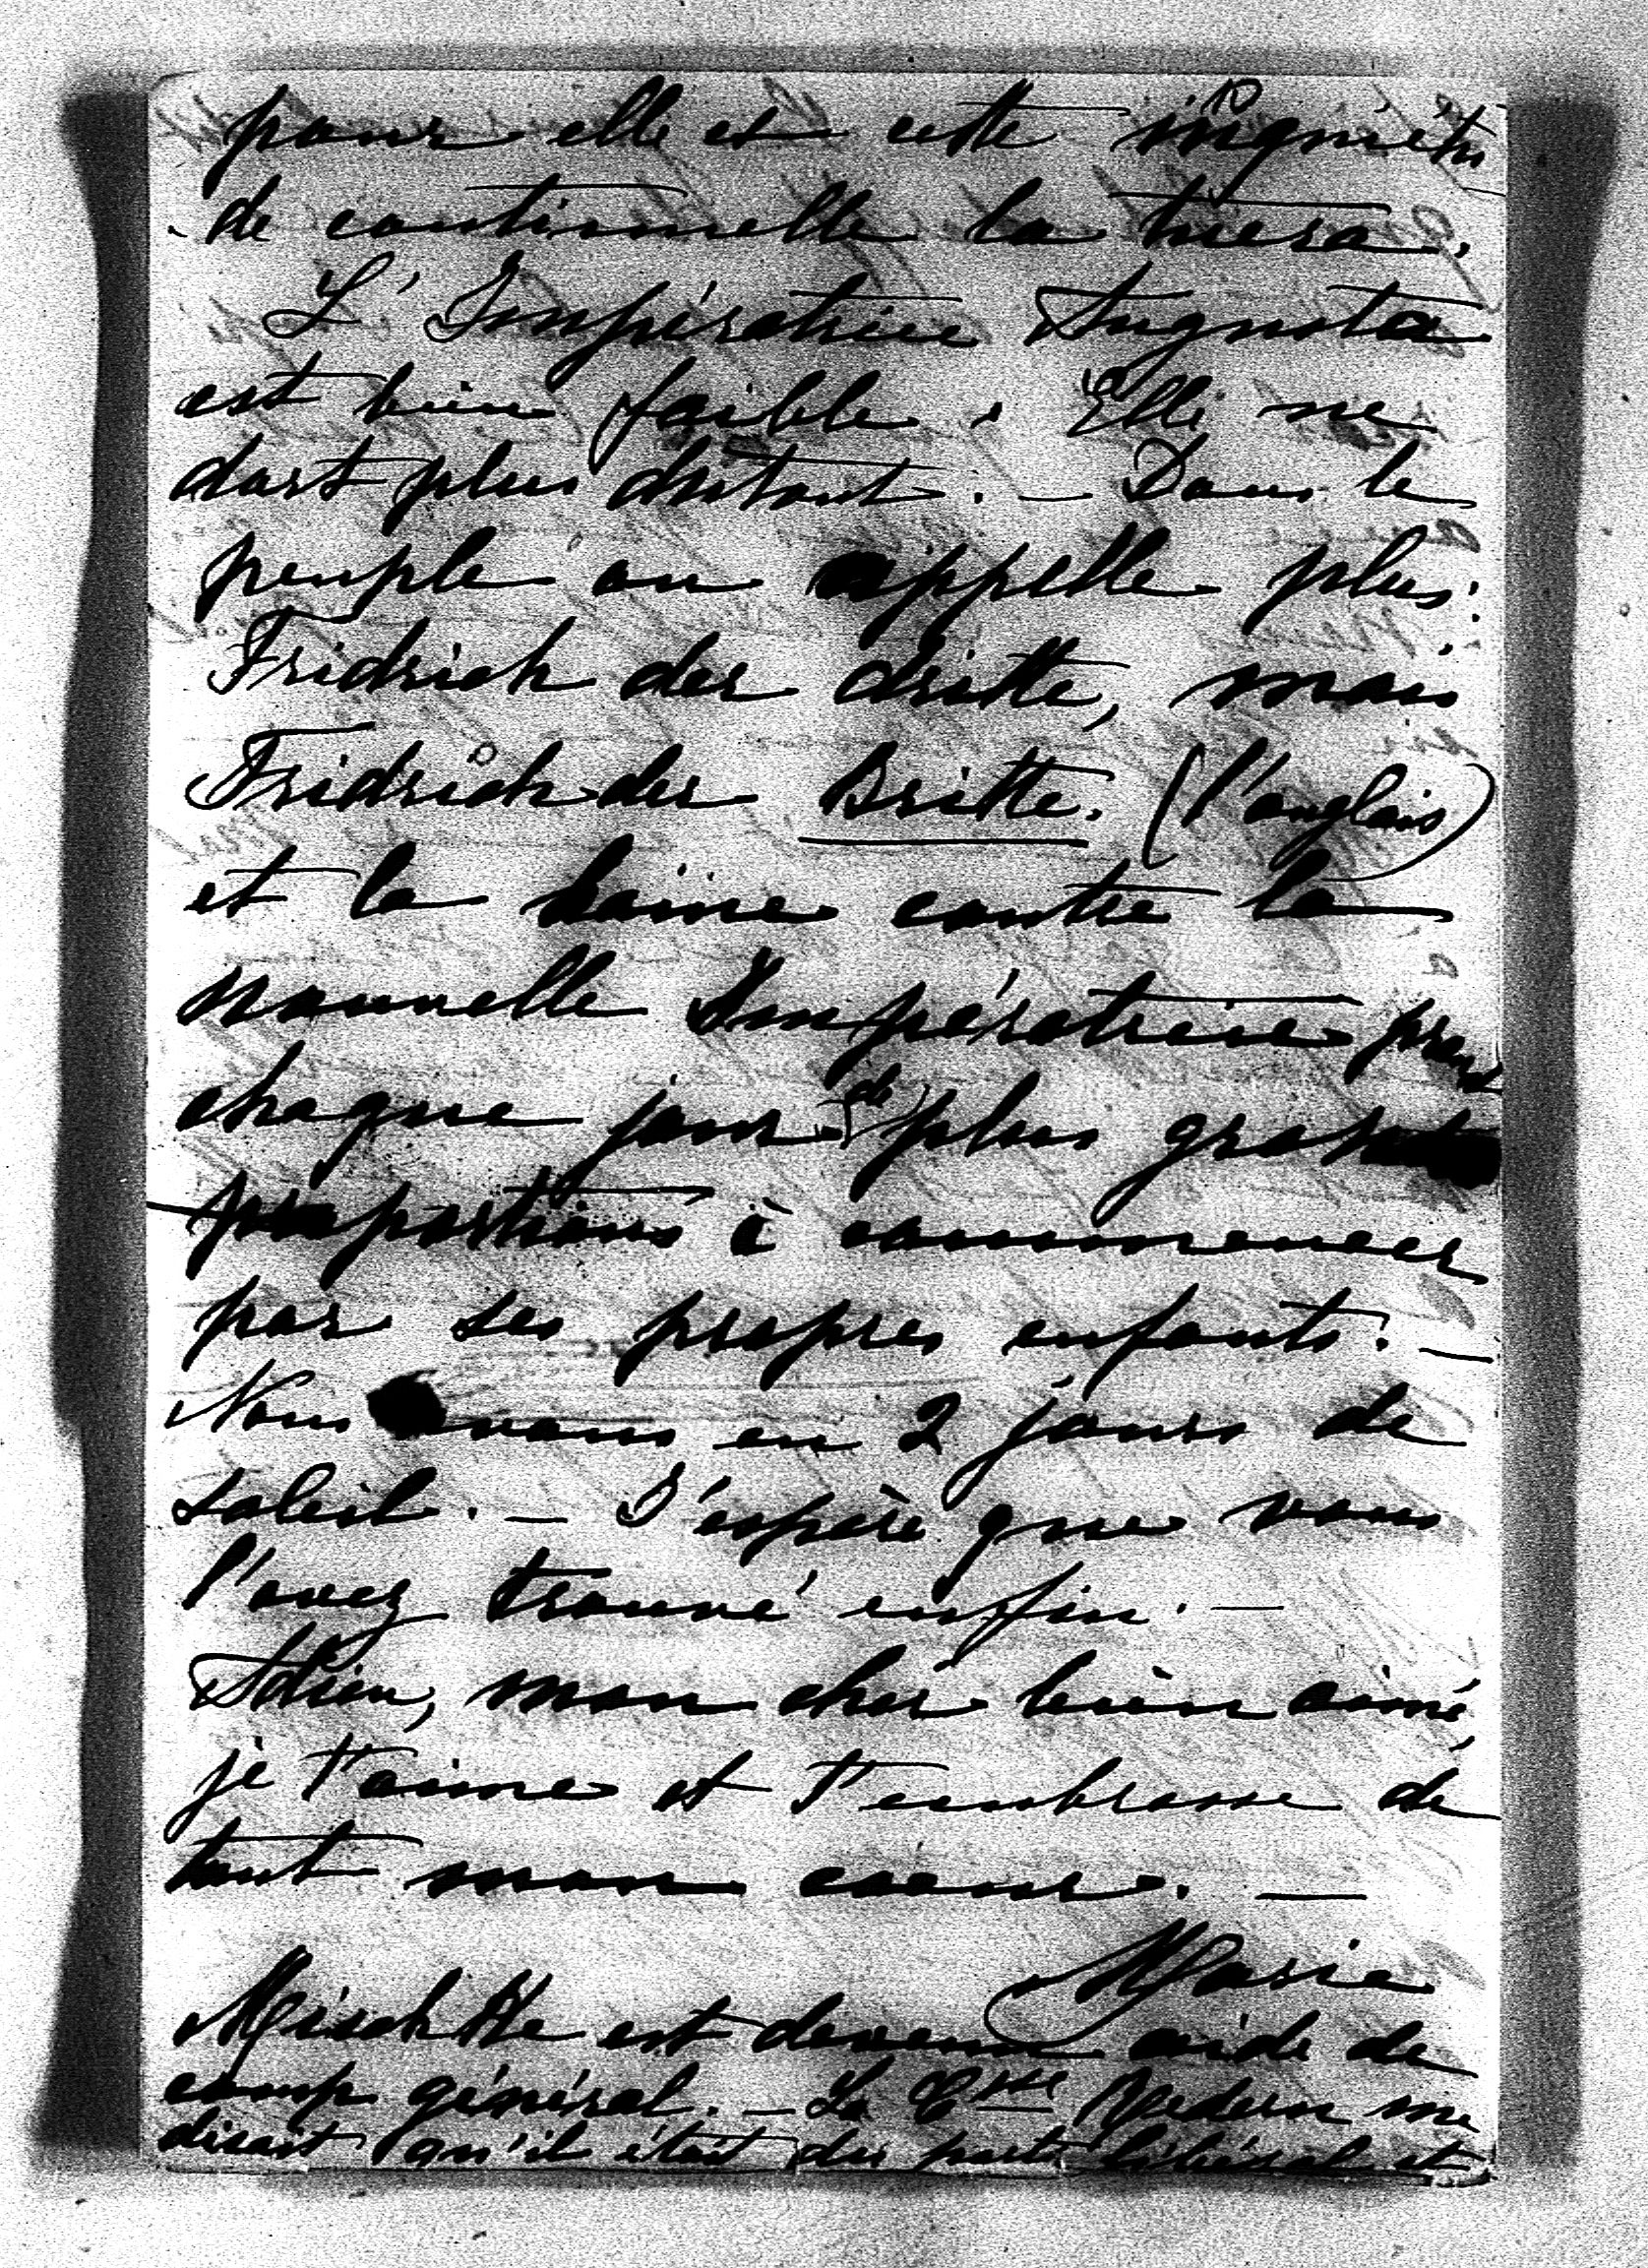 10
pour elle et cette inquiétu
de continuelle la tuera.
L'Impératrice Augusta
est bien faible. Elle ne
dort plus du tout. — Dans le
peuple on appelle plus:
Fridrich der dritte, mais
Fridrich der Britte. (l'anglais)
et la haine contre la
nouvelle Impératrice prend
chaque jour de plus grandes
proportions à commencer
par ses propres enfants. —
Nous avons eu 2 jours de
soleil. — J'espère que vous
l'avez trouvé enfin. —
Adieu, mon cher bien aimé,
je t'aime et t'embrasse de
tout mon coeur. —
Marie
est devenu aide de
camp général. — La Csse Medem me
disait qu'il était du parti libéral et